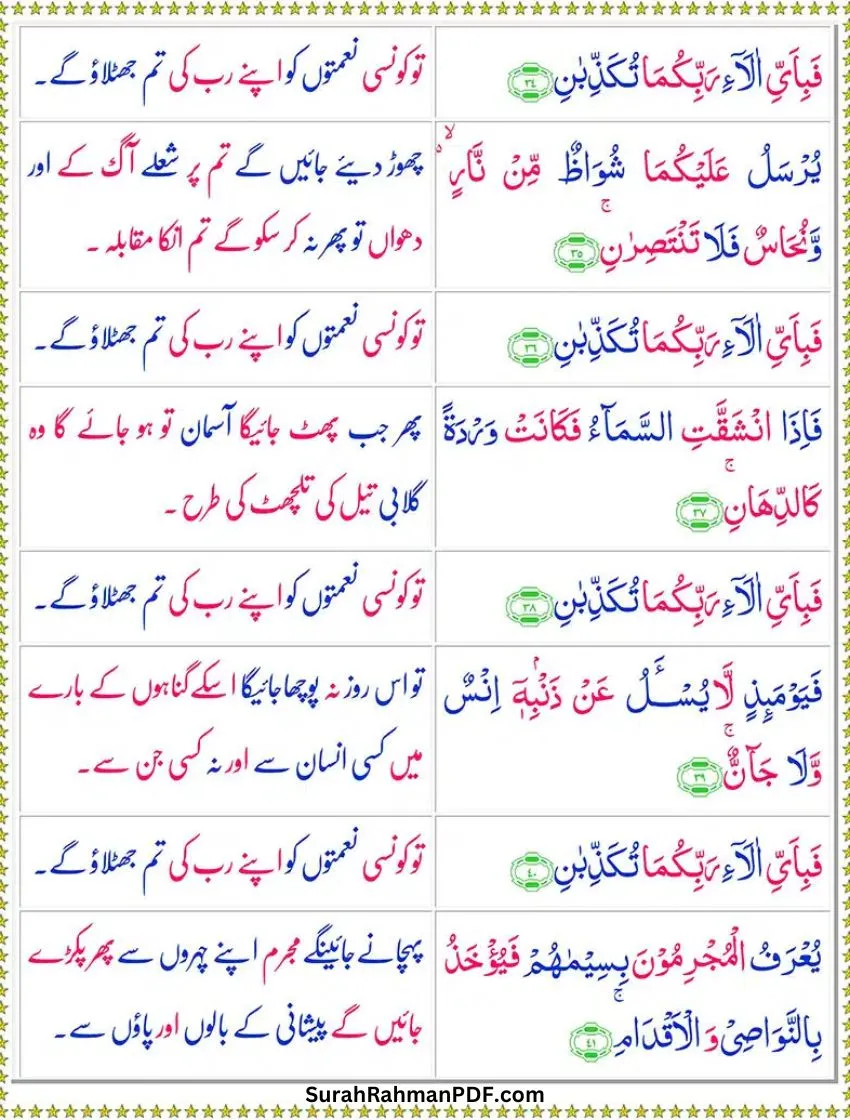 فَبِاَىِّ اٰلَآءِ رَبِّكُمَا تُكَذِّبٰنِ ﴿۳۴﴾
تو کونسی نعمتوں کو اپنے رب کی تم جھٹلاؤ گے۔
يُرْسَلُ عَلَيْكُمَا شُوَاظٌ مِّنْ نَّارٍ ۙ
وَّنُحَاسٌ فَلَا تَنْتَصِرٰنِ ۚ ﴿۳۵﴾
چھوڑ دیئے جائیں گے تم پر شعلے آگ کے اور
دھواں تو پھر نہ کر سکو گے تم انکا مقابلہ ۔
فَبِاَىِّ اٰلَآءِ رَبِّكُمَا تُكَذِّبٰنِ ﴿۳۶﴾
تو کونسی نعمتوں کو اپنے رب کی تم جھٹلاؤ گے۔
فَاِذَا انْشَقَّتِ السَّمَآءُ فَكَانَتْ وَرْدَةً
كَالدِّهَانِ ۚ ﴿۳۷﴾
پھر جب پھٹ جائیگا آسمان تو ہو جائے گا وہ
گلابی تیل کی تلچھٹ کی طرح ۔
فَبِاَىِّ اٰلَآءِ رَبِّكُمَا تُكَذِّبٰنِ ﴿۳۸﴾
تو کونسی نعمتوں کو اپنے رب کی تم جھٹلاؤ گے۔
فَيَوْمَئِذٍ لَّا يُسْــَٔـلُ عَنْ ذَنْۢبِهٖٓ اِنْسٌ
وَّلَا جَآنٌّ ۚ ﴿۳۹﴾
تو اس روز نہ پوچھا جائیگا اسکے گناہوں کے بارے
میں کسی انسان سے اور نہ کسی جن سے۔
فَبِاَىِّ اٰلَآءِ رَبِّكُمَا تُكَذِّبٰنِ ﴿۴۰﴾
تو کونسی نعمتوں کو اپنے رب کی تم جھٹلاؤ گے۔
يُعْرَفُ الْمُجْرِمُوْنَ بِسِيْمٰهُمْ فَيُؤْخَذُ
بِالنَّوَاصِىْ وَ الْاَقْدَامِ ۚ ﴿۴۱﴾
پہچانے جائینگے مجرم اپنے چہروں سے پھر پکڑے
جائیں گے پیشانی کے بالوں اور پاؤں سے۔
SurahRahmanPDF.com